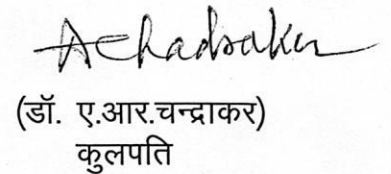 AChadrakar
(डॉ. ए.आर.चन्द्राकर)
कुलपति